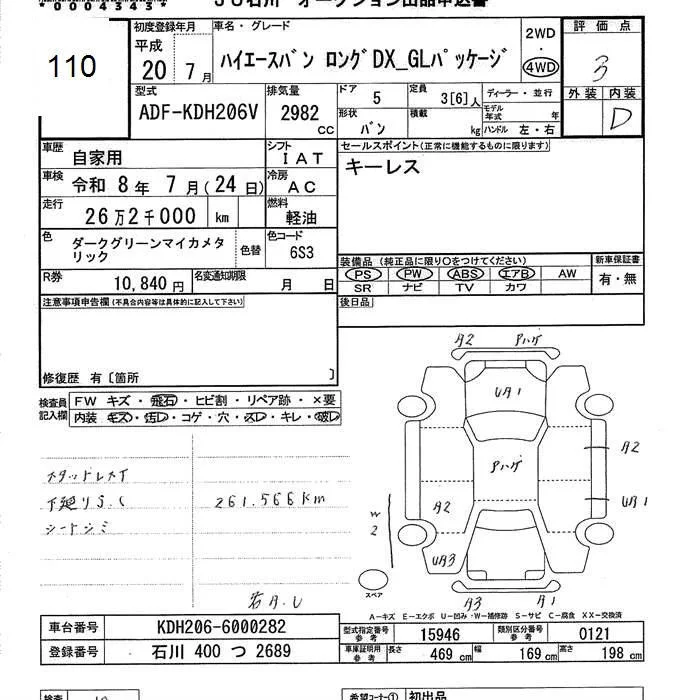 00004345
JU石川 オークション出品申込書
110
初度登録年月
平成
20 7月
車名・グレード
ハイエースバン ロングDX_GLパッケージ
2WD
・
4WD
評価点
3
外装 内装
D
型式
ADF-KDH206V
排気量
2982
cc
ドア
5
定員
3[6]人
ディーラー・並行
形状
バン
積載
kg
モデル年式 年
ハンドル 左・右
車歴
自家用
シフト
IAT
セールスポイント(正常に機能するものに限ります)
キーレス
車検
令和 8年 7月(24日)
冷房
AC
走行
26万2千000 km
燃料
軽油
色
ダークグリーンマイカメタリック
色替
色コード
6S3
装備品 (純正品に限り○をつけてください)
PS PW ABS エアB AW
SR ナビ TV カワ
新車保証書
有・無
R券
10,840円
名変通知期限
月 日
後日品
注意事項申告欄(不具合内容等は具体的に記入して下さい)
修復歴 有〔箇所 〕
検査員記入欄
FW キズ・飛石・ヒビ割・リペア跡・×要
内装 キズ・汚レ・コゲ・穴・スレ・キレ・破レ
スタッドレスT
下廻りS.C
シートシミ
261.566km
若A.U
A2 Pハゲ
UA1
Pハゲ
A2
A2
UA1
W2
UA3
スペア
A3 A1
A－キズ E－エクボ U－凹み W－補修跡 S－サビ C－腐食 XX－交換済
車台番号
KDH206-6000282
登録番号
石川 400 つ 2689
型式指定番号 参考
15946
類別区分番号 参考
0121
車庫証明用 参考
長さ 469cm
幅 169cm
高さ 198cm
検査
希望コーナー① 初出品